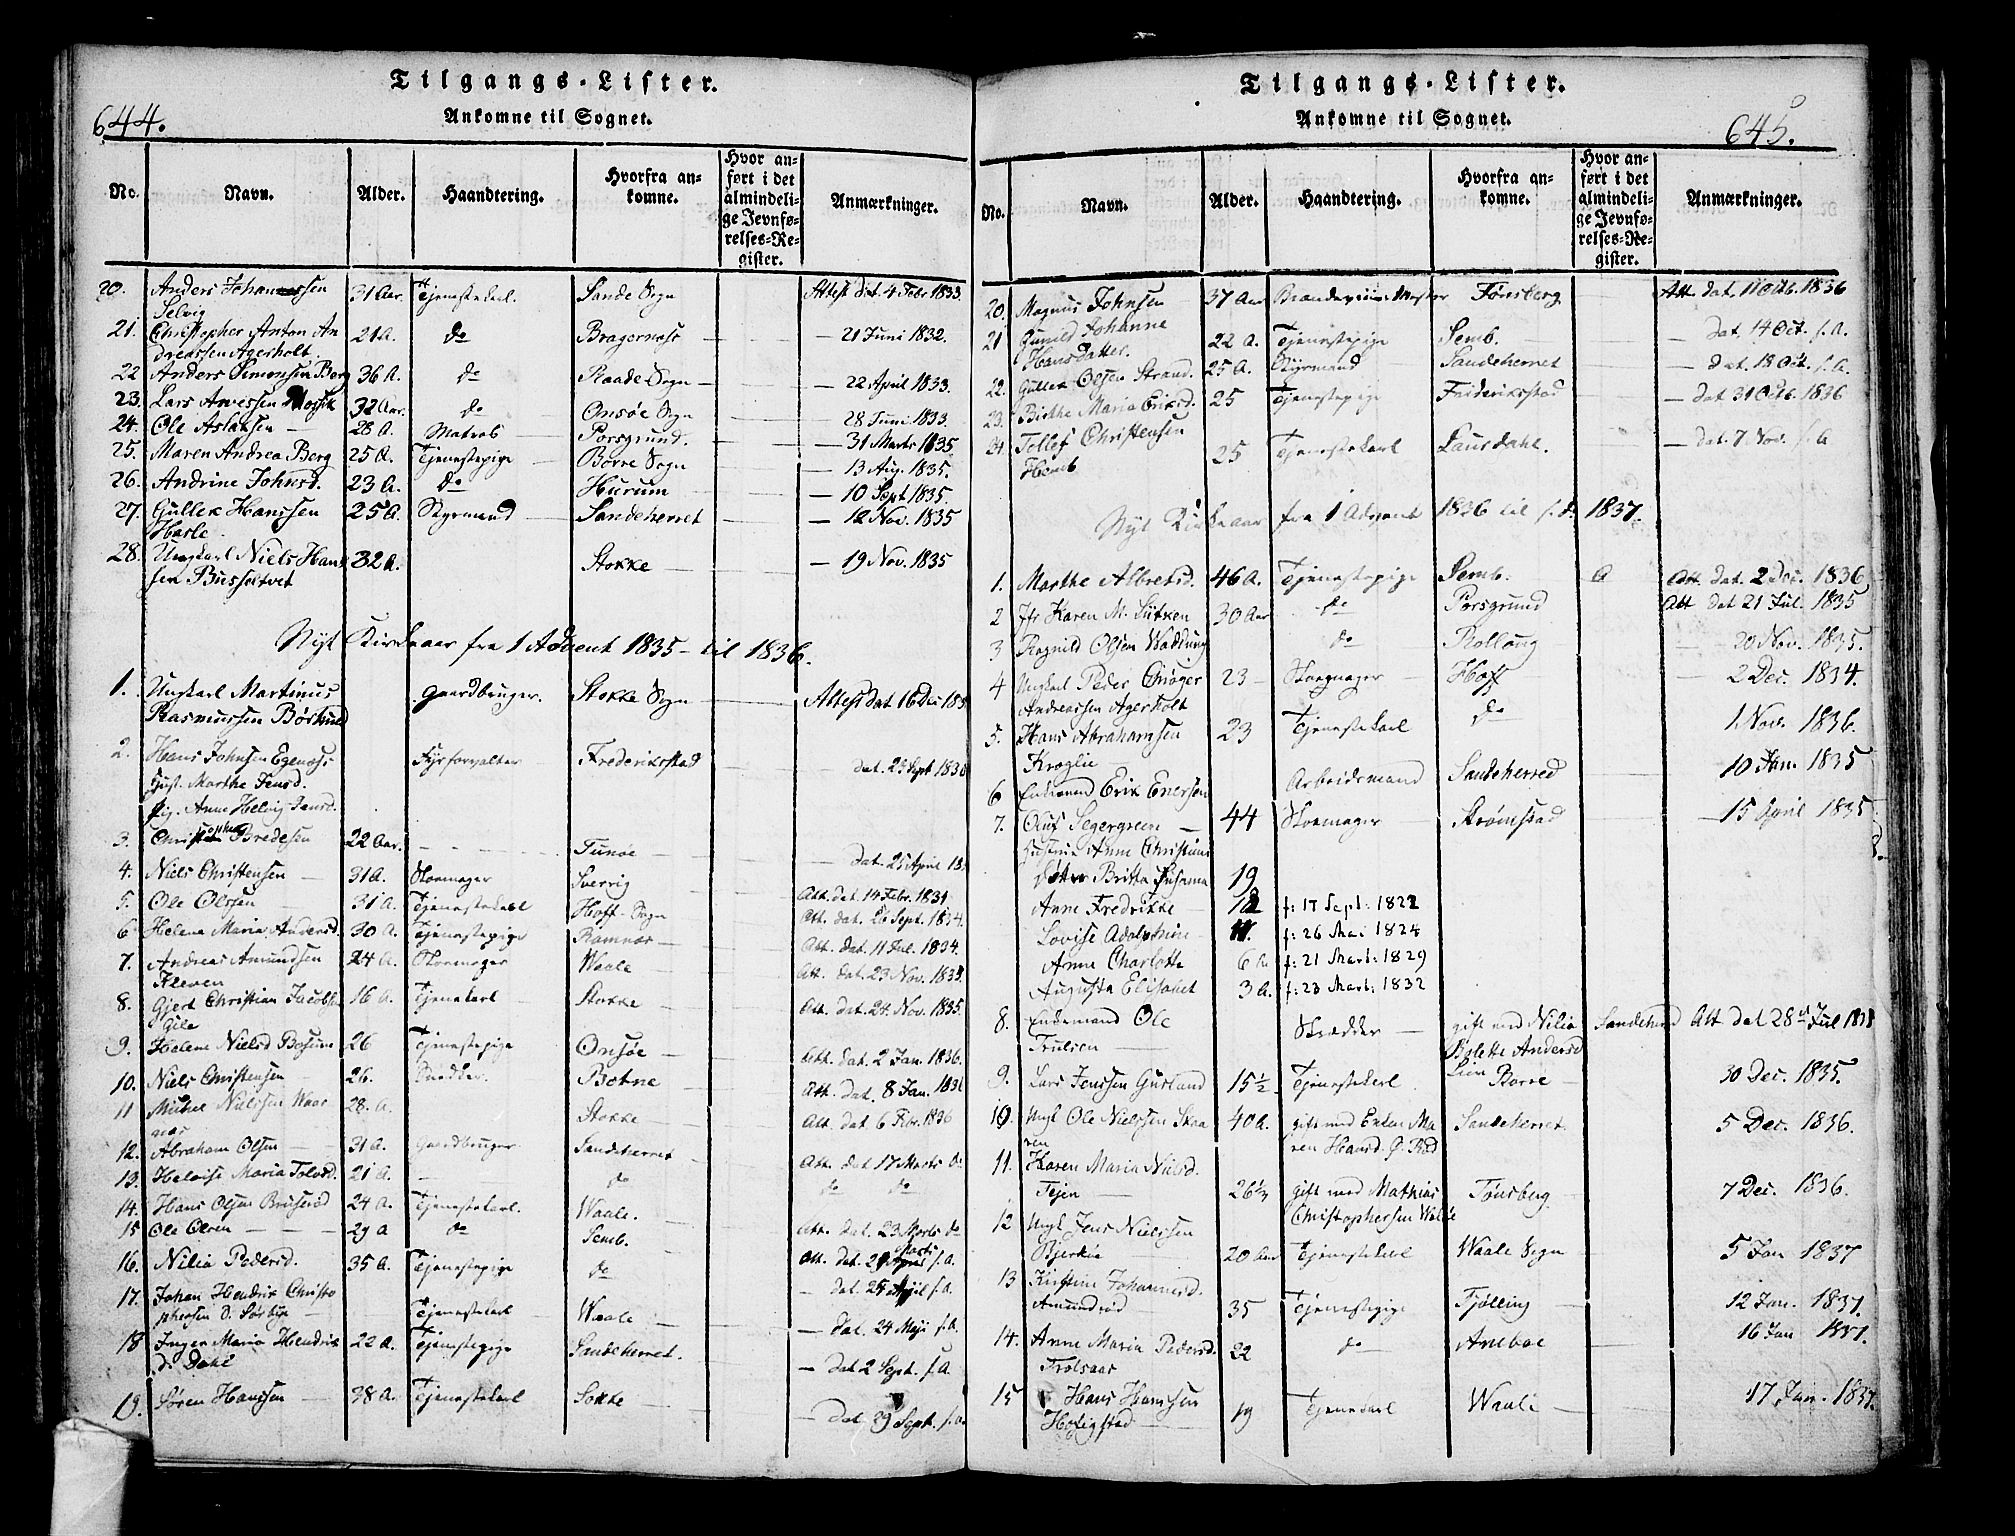 Tilgangs-Lister.
Ankomne til Sognet.
644.
No. Navn. Alder. Haandtering. Hvorfra ankomne. Hvor anført i det almindelige Jevnførelses-Register. Anmærkninger.
20. Anders Johannessen 31 Aar. Tjenestekarl. Sande Sogn Attest dat. 4 Febr 1833.
Selvig
21. Christopher Anton An 21 A. do Bragernæs — 21 Juni 1832.
dreassen Agerholt.
22 Anders Simonsen Berg 36 A. do Raade Sogn — 22 April 1833.
23. Lars Arvessen 32 Aar. do Onsøe Sogn 28 Juni 1833.
24. Ole Aslaksen — 28 A. Matros Porsgrund. — 31 Marts 1835
25. Maren Andrea Berg 25 A. Tjenestepige Borre Sogn — 13 Aug. 1835.
26. Andrine Johnsd. 23 A. do Hurum — 10 Sept 1835
27. Gullek Hanssen 25 A. Styrmand Sandeherret — 12 Nov. 1835
Hasle
28. Ungkarl Niels Han 32 A. Stokke — 19 Nov. 1835
sen
Nyt Kirkeaar fra 1 Advent 1835 - til 1836.
1. Ungkarl Martinus gaardbruger. Stokke Sogn Attest dat 16 Dec
Rasmussen
2. Hans Johnsen Fyrforvalter Frederiksstad dat. 23 Sept
Hust. Marthe Jensd.
pig. Anne Helvig
3. Christopher Bredesen 22 Aar. Tunøe — dat. 25 April
4. Niels Christensen — 31 A. Skomager Sverrig Att. dat. 14 Febr. 1831
5. Ole Olssen — 31 A. Tjenestekarl Hoff Sogn Att. dat. Sept. 1834.
6 Helene Maria Andersd. 30 A. Tjenestepige Ramnæs — Att. dat. 11 Jul. 1834.
7. Andreas Amundsen 24 A. Skomager Waale — Att. dat. 23 Nov.
Kleven
8. Gjert Christian Jacobs. 16 A. Tjenestkarl Stokke Att. dat. 24. Nov. 1835.
9. Helene Nielsd 26 Tjenestepige Onsøe — Att. dat. 2 Jan. 1836.
10. Niels Christensen 26. Snedker. Botne Att. dat. 8 Jan.
11 Michel Nielssen 28. A. Stokke Att. dat 6 Febr. 1836
12. Abraham Olsen — 31 A. Gaardbruger Sandeherret — Att. dat 17 Marts do
13. Heloise Maria 21 A. do do do
14. Hans Olsen 24 A. Tjenestekarl. Waale. Att. dat. 23 Marts do
15 Ole Olsen — 29 A do Semb. Att. dat. 29 Marts s. A.
16. Nilia Pedersd. 35 A. Tjenestepige do — dat. 25 April s. A.
17. Johan Hendrik Christo
phersen Tjenestekarl Waale — — dat. 24 Maji s. A.
18 Inger Maria Hendrik 22 A. Tjenestepige Sandeherret. — dat 2 Sept. s. A
d. Dahl
19. Søren Hanssen — 38 A. Tjenestekarl — dat 29 Sept. s. A
Tilgangs-Lister.
Ankomne til Sognet.
645.
No. Navn. Alder. Haandtering. Hvorfra ankomne. Hvor anført i det almindelige Jevnførelses-Register. Anmærkninger.
20. Magnus Johnsen 37 Aar Tønsberg — Att. dat. 11 Octb. 1836
21 Gunild Johanne 22 A. Tjenestepige Semb. — dat. 14 Oct. s. A.
Hansdatter.
22. Gullek Olsen Strand. 25 A. Styrmand Sandeherret — dat. 18 Oct. s. A
23. Birthe Maria Eriksd. 25 Tjenestepige Frideriksstad — dat 31 Octb. 1836
24. Tollef Christensen 25 Tjenestekarl Laurdahl. — dat. 7 Nov. s. A
Hemb
Nyt Kirkeaar fra 1 Advent 1836 til s. d. 1837.
1. Marthe Albretsd. 46 A. Tjenestepige Semb. Att. dat. 2 Dec. 1836
2 Jfr Karen M. 30 Aar do Porsgrund Att dat 21 Jul. 1835
3 Ragnild Olsen do Rollaug — 20 Nov. 1835.
4 Ungkarl Peder 23 — Skomager Hoff — 2 Dec. 1834.
Andreassen Agerholt
5. Hans Abrahamsen 23 Tjenestekarl do 1 Nov. 1836.
Kroglie
6 Enkemand Erik Enersen Arbeidsmand Sandeherred 10 Jan. 1835
7. Oluf Segergreen — 44 Skomager — Strømstad — 15 April 1835
Hustrue Anne Christine
Døtre Britta Susanna 19
Anne Fredrikke — f: 17 Sept: 1822
Lovise Adolphine f: 26 Mai 1824
Anne Charlotte 6 A f: 21 Mart: 1829
Augusta Elisabet 3 A. f: 23 Mart: 1832
8. Enkemand Ole Skrædder — gift med Nilia Sandeherred Att dat 28 Jul
Trulsen — Bolette Andersd
Lien
9. Lars Jenssen 15 ½ Tjenestekarl. Borre — 30 Dec. 1835.
10. Ungk Ole Nielssen Skaa 40 A. gift med Enken Ma Sandeherret. 5 Dec. 1836.
ren ren Hansd.
11. Karen Maria Nielsd. 26 ½ gift med Mathias Tønsberg — 7 Dec. 1836.
Tejen — Christophersen
12 Ungk Jens Nielssen
Bjerkøe 20 Aar Tjenestekarl Waale Sogn 5 Jan 1837
13 Kirstine Johannesd. 35 Tjenestepige Tjølling 12 Jan. 1837.
Amundrød
14. Anne Maria Pedersd. 22 do 16 Jan 1837.
15 Hans Hanssen 19 Tjenestkarl Waale — 17 Jan. 1837.